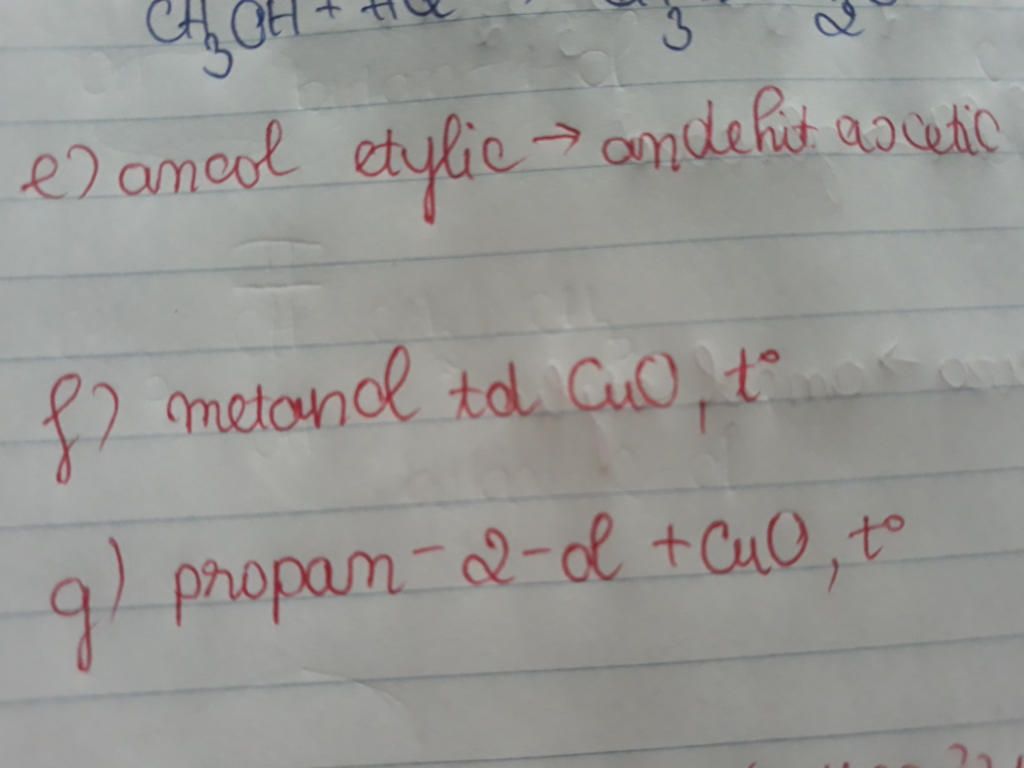 CH3OH + HCl
3 2
e) ancol etylic → andehit axcetic
f) metanol td CuO, t°
g) propan-2-ol + CuO, t°